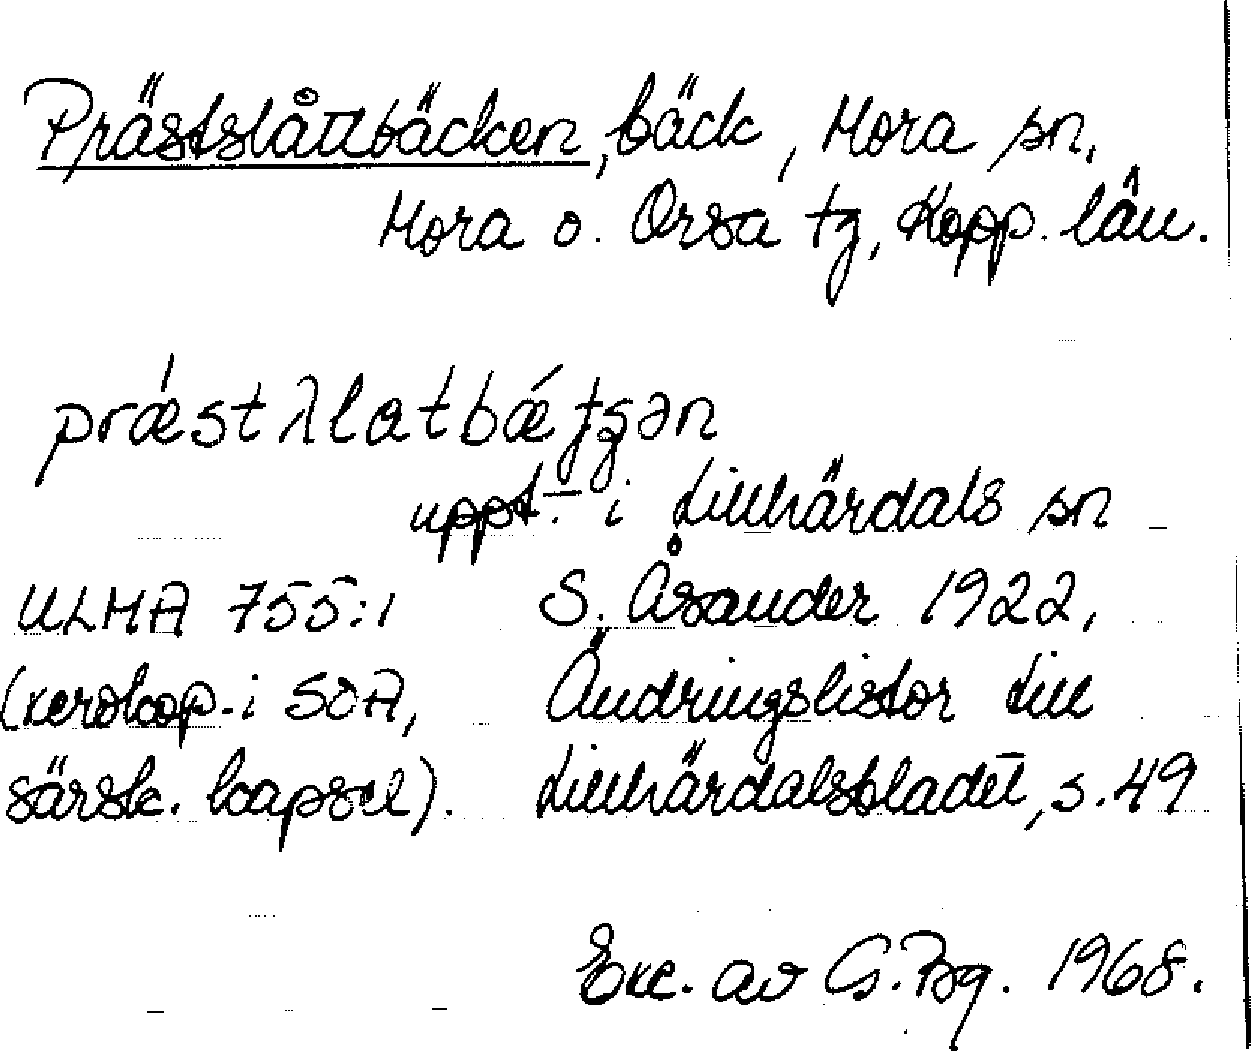 Prästslåttbäcken, bäck, Mora sn,
Mora o. Orsa tg, Kopp. län.
prǽstλlatbǽtʂən
uppt. i Lillhärdals sn
ULMA 755:1 S. Åsander 1922,
(xerokop. i SOA, Ändringslistor till
särsk. kapsel). Lillhärdalsbladet, s. 49
Exc. av G. Bg. 1968.